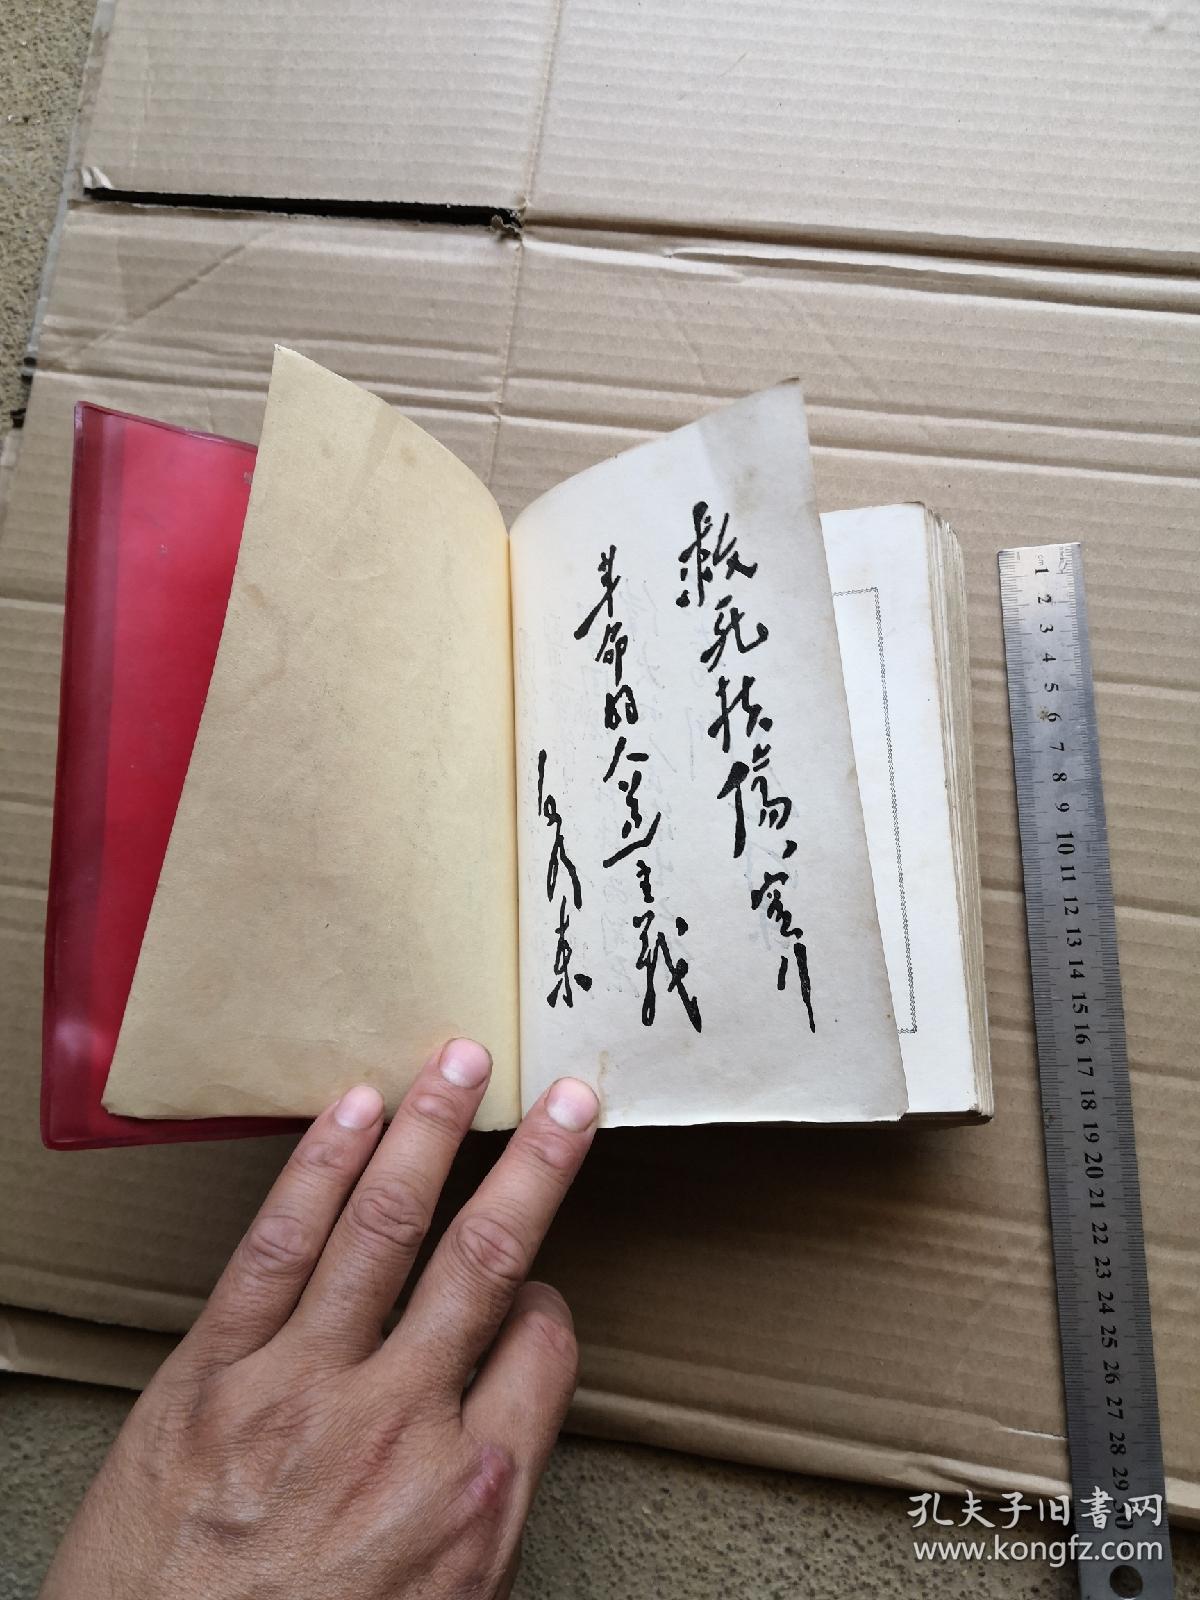 救死扶伤，实行
革命的人道主义
毛泽东
cm 1 2 3 4 5 6 7 8 9 10 11 12 13 14 15 16 17 18 19 20 21 22 23 24 25 26 27 28 29 30
孔夫子旧書网
www.kongfz.com